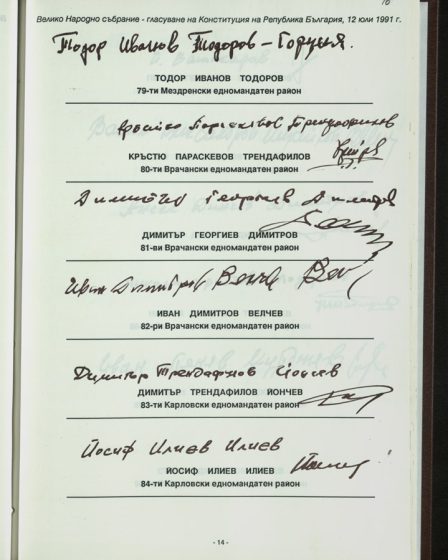 10
Велико Народно събрание - гласуване на Конституция на Република България, 12 юли 1991 г.
Тодор Иванов Тодоров -
ТОДОР ИВАНОВ ТОДОРОВ
79-ти Мездренски едномандатен район
Кръстю Параскевов Трендафилов
КРЪСТЮ ПАРАСКЕВОВ ТРЕНДАФИЛОВ
80-ти Врачански едномандатен район
Димитър Георгиев Димитров
ДИМИТЪР ГЕОРГИЕВ ДИМИТРОВ
81-ви Врачански едномандатен район
Иван Димитров Велчев
ИВАН ДИМИТРОВ ВЕЛЧЕВ
82-ри Врачански едномандатен район
Димитър Трендафилов Йончев
ДИМИТЪР ТРЕНДАФИЛОВ ЙОНЧЕВ
83-ти Карловски едномандатен район
Йосиф Илиев Илиев
ЙОСИФ ИЛИЕВ ИЛИЕВ
84-ти Карловски едномандатен район
- 14 -